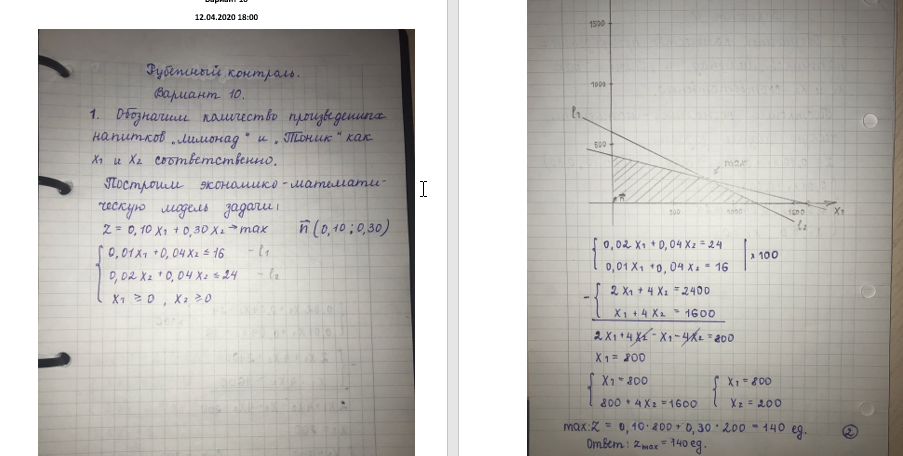 Вариант 10
12.04.2020 18:00
Рубежный контроль.
Вариант 10.
1. Обозначим количество произведенных
напитков „Лимонад" и „Тоник" как
x₁ и x₂ соответственно.
Построим экономико-математи-
ческую модель задачи:
Z = 0,10 x₁ + 0,30 x₂ → max n̄ (0,10 ; 0,30)
0,01x₁ + 0,04 x₂ ≤ 16 - l₁
0,02 x₂ + 0,04 x₂ ≤ 24 - l₂
x₁ ≥ 0 , x₂ ≥ 0
1500
1000
l₁
500
max
n̄
500 1000 1500 x₁
l₂
0,02 x₁ + 0,04 x₂ = 24
0,01 x₁ + 0,04 x₂ = 16 | x 100
- 2 x₁ + 4 x₂ = 2400
x₁ + 4 x₂ = 1600
2 x₁ + 4 x₂ - x₁ - 4 x₂ = 800
x₁ = 800
x₁ = 800 x₁ = 800
800 + 4 x₂ = 1600 x₂ = 200
max: Z = 0,10 · 800 + 0,30 · 200 = 140 ед. 2
Ответ: z max = 140 ед.